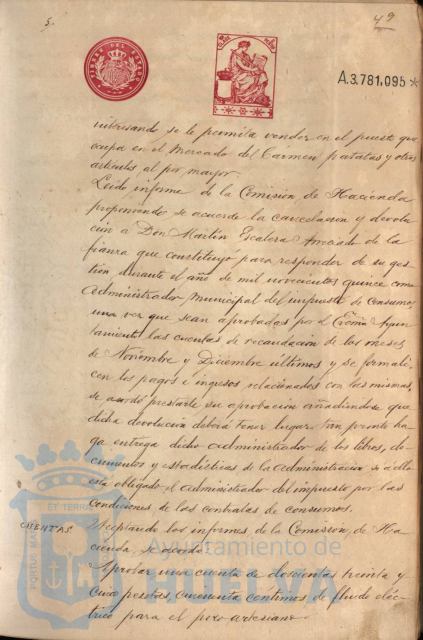 5.
49
TIMBRE DEL ESTADO
A.3.781,095*
interesando se le permita vender en el puesto que
ocupa en el Mercado del Carmen patatas y otros
artículos al por mayor.
Leido informe de la Comisión de Hacienda
proponiendo se acuerde la cancelacion y devolu
ción a Don Martín Escalera Amado de la
fianza que constituyó para responder de su ges-
tión durante el año de mil novecientos quince como
Administrador municipal del impuesto de consumos
una vez que sean aprobadas por el Excmo Ayun
tamiento las cuentas de recaudación de los meses
de Noviembre y Diciembre últimos y se formali-
cen los pagos e ingresos relacionados con las mismas,
se acordó prestarle su aprobación añadiendose que
dicha devolucion deberá tener lugar tan pronto ha-
ga entrega dicho Administrador de los libros, do-
cumentos y estadísticas de la Administración si a ello
está obligado el Administrador del impuesto por las
condiciones de los contratas de consumos.
CUENTAS
Aceptando los informes de la Comision de Ha
cienda, se acordó
Aprobar una cuenta de doscientas treinta y
cinco pesetas, cincuenta centimos de fluido eléc-
trico para el pozo artesiano.
Ayuntamiento de
HUELVA